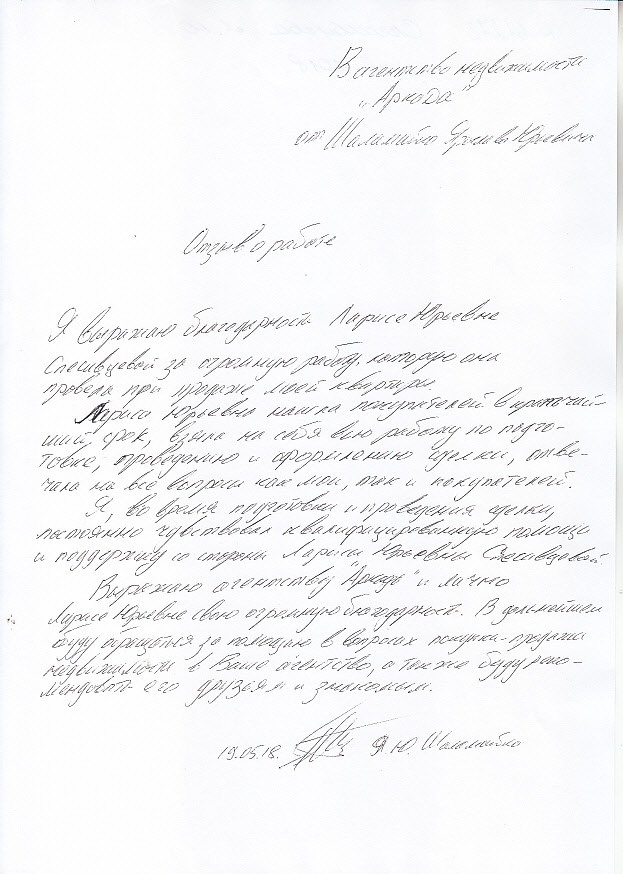 В агентство недвижимости
„Аркада"
от Шаламайко Ярослава Юрьевича
Отзыв о работе
Я выражаю благодарность Ларисе Юрьевне
Спесивцевой за огромную работу, которую она
провела при продаже моей квартиры.
Лариса Юрьевна нашла покупателей в кратчай-
ший срок, взяла на себя всю работу по подго-
товке, проведению и оформлению сделки, отве-
чала на все вопросы как мои, так и покупателей.
Я, во время подготовки и проведения сделки,
постоянно чувствовал квалифицированную помощь
и поддержку со стороны Ларисы Юрьевны Спесивцевой.
Выражаю агентству "Аркада" и лично
Ларисе Юрьевне свою огромную благодарность. В дальнейшем
буду обращаться за помощью в вопросах покупки-продажи
недвижимости в Ваше агентство, а также буду реко-
мендовать его друзьям и знакомым.
19.05.18. Я Ю. Шаламайко